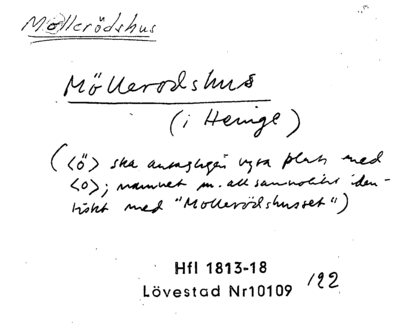 Möllerödshus
Möllerodshus
(i Heinge)
(<ö> ska antagligen byta plats med
<o>; namnet m. all sannolikt iden-
tiskt med "Mollerödshusset")
Hfl 1813-18
Lövestad Nr10109 122